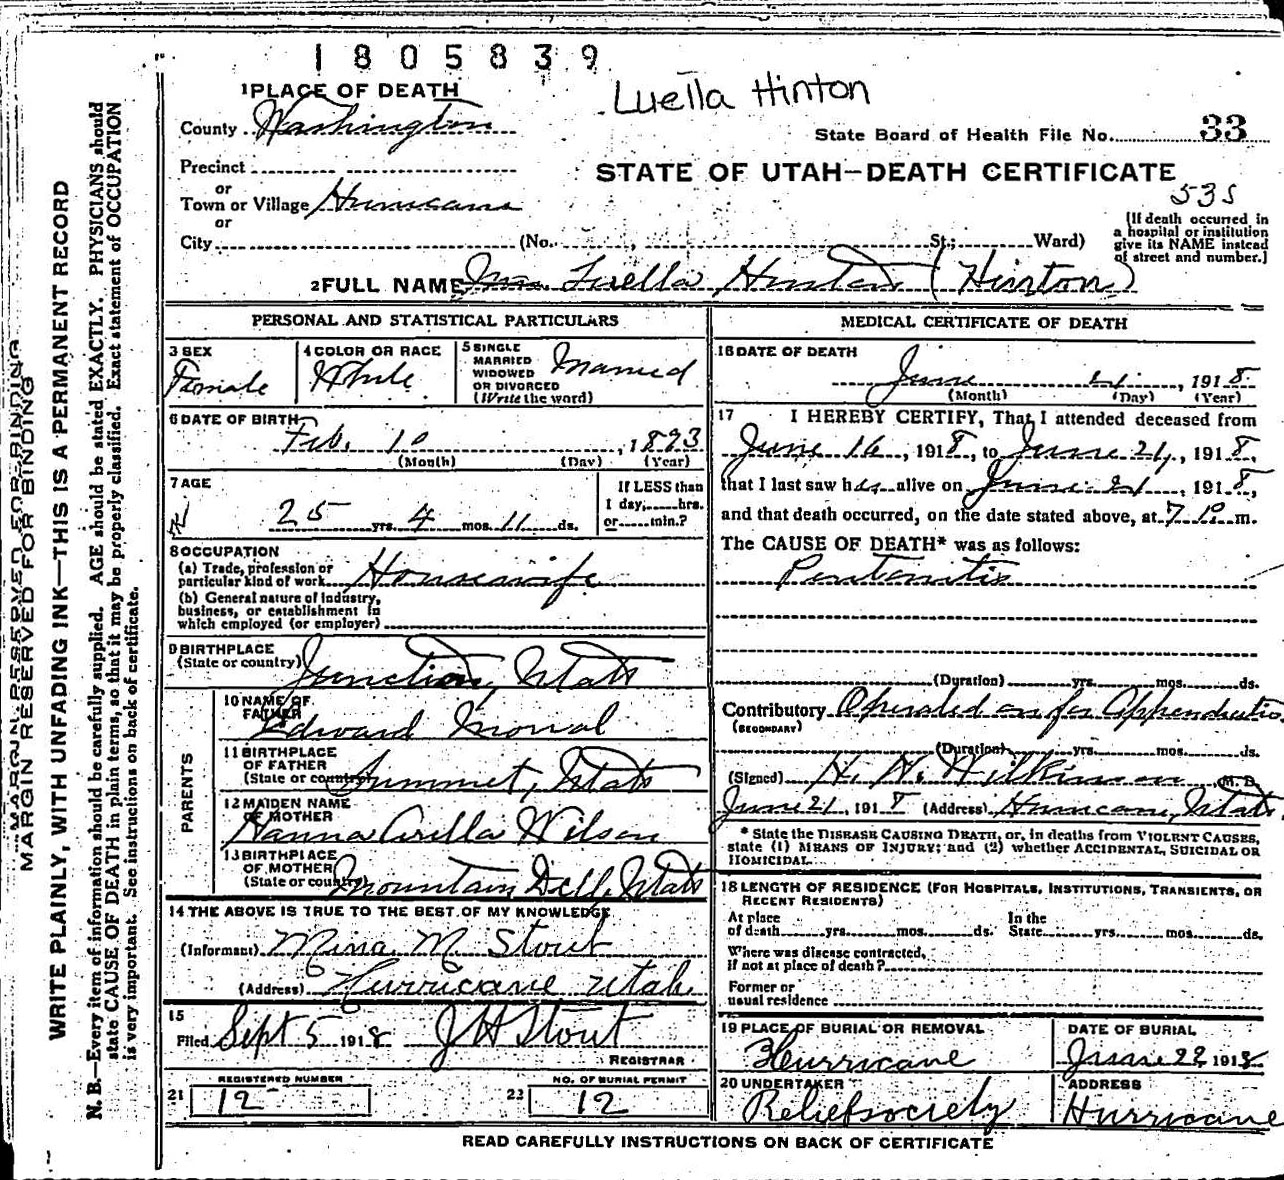 1805839
Luella Hinton
1 PLACE OF DEATH
County Washington
State Board of Health File No. 33
Precinct
or
STATE OF UTAH—DEATH CERTIFICATE
535
Town or Village Hurricane
or
City (No. , St.; Ward)
(If death occurred in
a hospital or institution
give its NAME instead
of street and number.]
2 FULL NAME Luella Hinton (Hinton)
PERSONAL AND STATISTICAL PARTICULARS
3 SEX
Female
4 COLOR OR RACE
White
5 SINGLE
MARRIED
WIDOWED
OR DIVORCED
(Write the word)
Married
6 DATE OF BIRTH
Feb. 10, 1893
(Month) (Day) (Year)
7 AGE
25 yrs. 4 mos. 11 ds.
If LESS than
1 day, hrs.
or min.?
8 OCCUPATION
(a) Trade, profession or
particular kind of work Housewife
(b) General nature of industry,
business, or establishment in
which employed (or employer)
9 BIRTHPLACE
(State or country) Junction, Utah
PARENTS
10 NAME OF
FATHER
Edward
11 BIRTHPLACE
OF FATHER
(State or country) Summit, Utah
12 MAIDEN NAME
OF MOTHER
Hanna Wilson
13 BIRTHPLACE
OF MOTHER
(State or country) Mountain Dell, Utah
14 THE ABOVE IS TRUE TO THE BEST OF MY KNOWLEDGE
(Informant) Mina M. Stout
(Address) Hurricane Utah
15
Filed Sept 5 1918 J H Stout
REGISTRAR
21 REGISTERED NUMBER
12
23 NO. OF BURIAL PERMIT
12
MEDICAL CERTIFICATE OF DEATH
16 DATE OF DEATH
June 21, 1918
(Month) (Day) (Year)
17 I HEREBY CERTIFY, That I attended deceased from
June 16, 1918, to June 21, 1918,
that I last saw her alive on June 21, 1918,
and that death occurred, on the date stated above, at 7 P. m.
The CAUSE OF DEATH* was as follows:
Peritonitis
(Duration) yrs. mos. ds.
Contributory Operated on for Appendicitis
(SECONDARY)
(Duration) yrs. mos. ds.
(Signed) Wilkinson M.D.
June 21, 1918 (Address) Hurricane, Utah
* State the DISEASE CAUSING DEATH, or, in deaths from VIOLENT CAUSES,
state (1) MEANS OF INJURY; and (2) whether ACCIDENTAL, SUICIDAL OR
HOMICIDAL.
18 LENGTH OF RESIDENCE (FOR HOSPITALS, INSTITUTIONS, TRANSIENTS, OR
RECENT RESIDENTS)
At place
of death yrs. mos. ds.
In the
State yrs. mos. ds.
Where was disease contracted,
if not at place of death?
Former or
usual residence
19 PLACE OF BURIAL OR REMOVAL
Hurricane
DATE OF BURIAL
June 22 1918
20 UNDERTAKER
Relief society
ADDRESS
Hurricane
READ CAREFULLY INSTRUCTIONS ON BACK OF CERTIFICATE
MARGIN RESERVED FOR BINDING
MARGIN RESERVED FOR BINDING
WRITE PLAINLY, WITH UNFADING INK—THIS IS A PERMANENT RECORD
N. B.—Every item of information should be carefully supplied. AGE should be stated EXACTLY. PHYSICIANS should
state CAUSE OF DEATH in plain terms, so that it may be properly classified. Exact statement of OCCUPATION
is very important. See instructions on back of certificate.